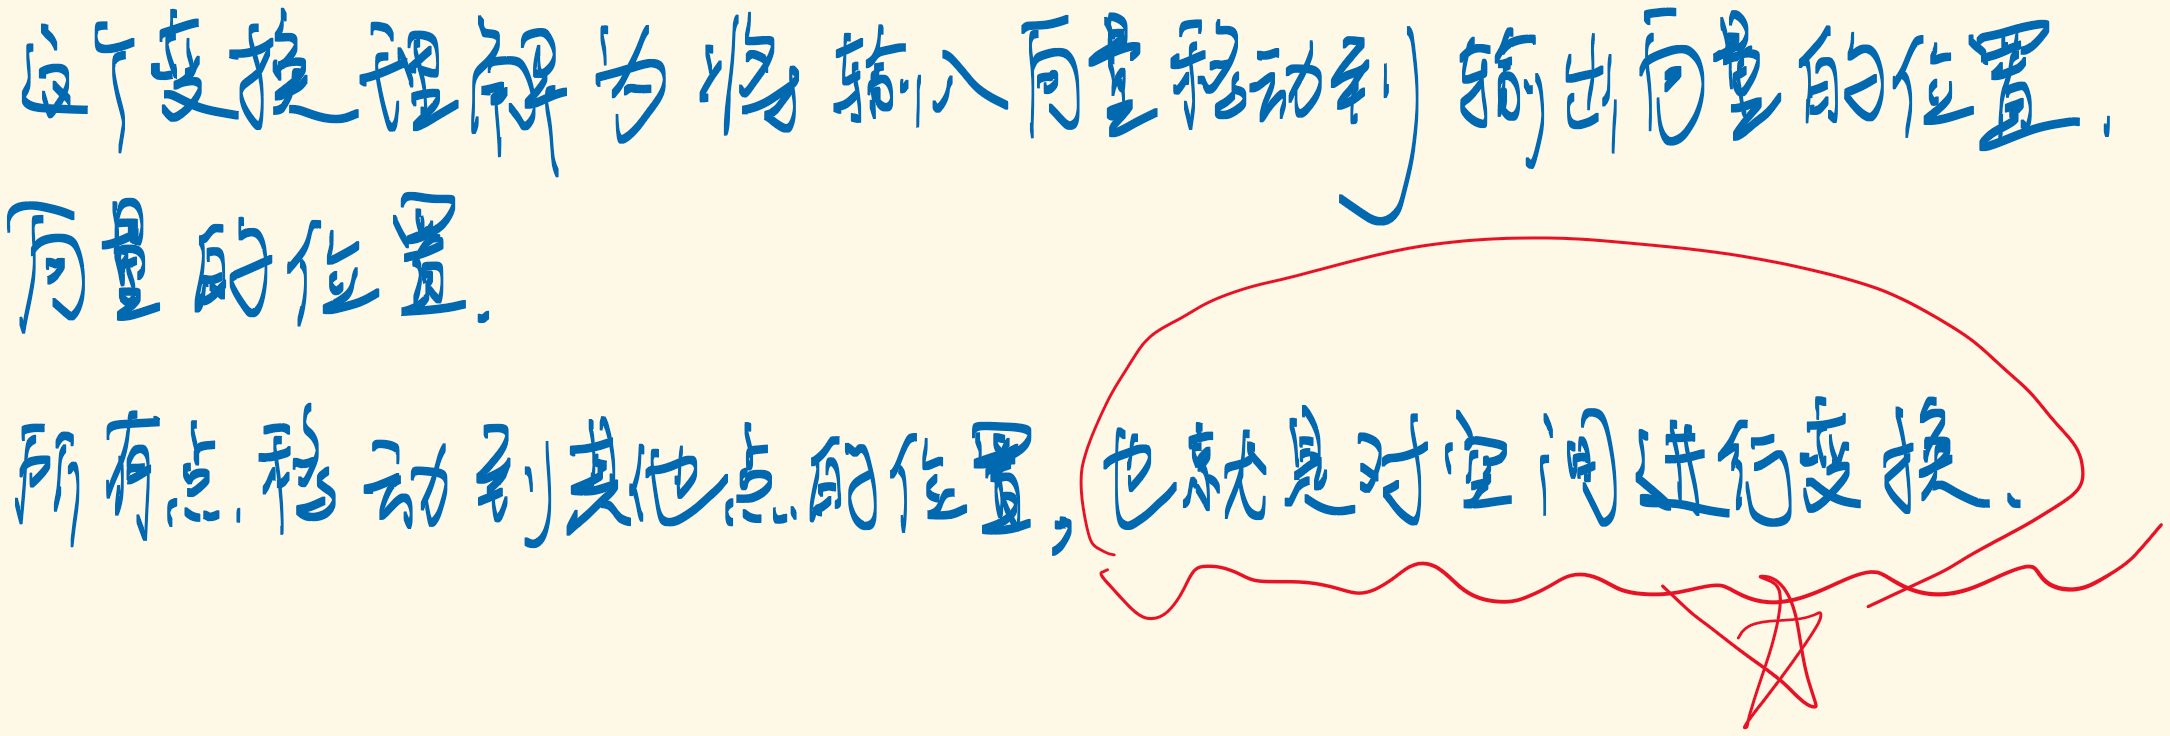 这个变换理解为将输入向量移动到输出向量的位置.
向量的位置.
所有点移动到其他点的位置,也就是对空间进行变换.